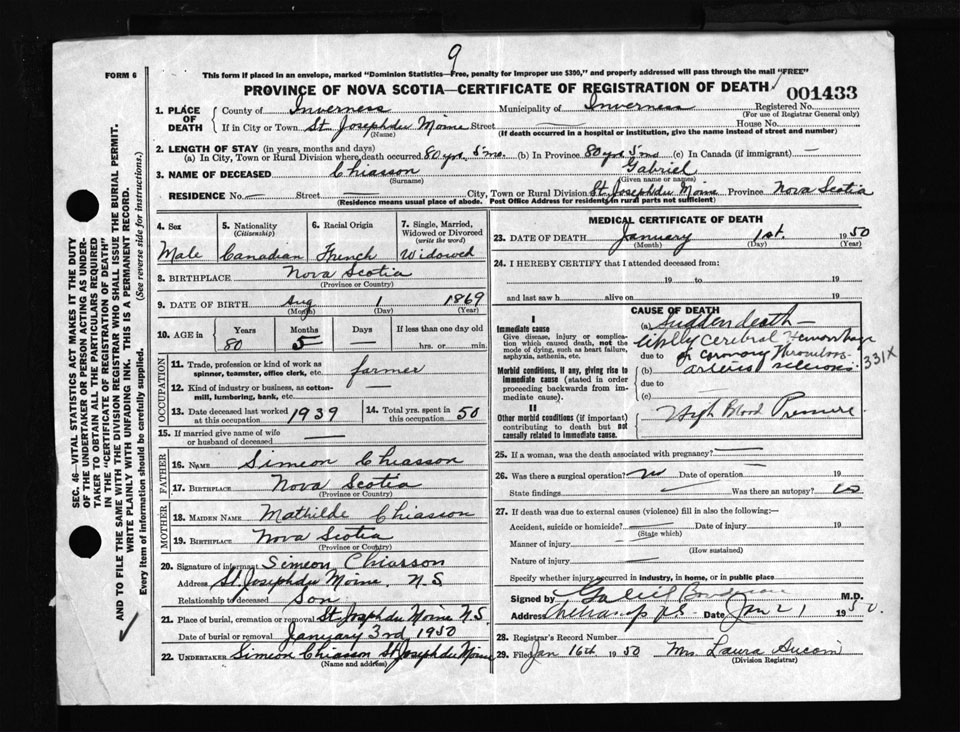 9
FORM 6
This form if placed in an envelope, marked "Dominion Statistics—Free, penalty for improper use $300," and properly addressed will pass through the mail "FREE"
PROVINCE OF NOVA SCOTIA—CERTIFICATE OF REGISTRATION OF DEATH
001433
1. PLACE OF DEATH
County of Inverness Municipality of Inverness Registered No.
(For use of Registrar General only)
If in City or Town St. Joseph du Moine Street — House No.
(Name) (If death occurred in a hospital or institution, give the name instead of street and number)
2. LENGTH OF STAY (in years, months and days)
(a) In City, Town or Rural Division where death occurred 80 yrs. 5 mo. (b) In Province 80 yrs 5 mo (c) In Canada (if immigrant) —
3. NAME OF DECEASED Chiasson Gabriel
(Surname) (Given name or names)
RESIDENCE No. — Street City, Town or Rural Division St. Joseph du Moine Province Nova Scotia
(Residence means usual place of abode, Post Office Address for residents in rural parts not sufficient)
SEC. 46—VITAL STATISTICS ACT MAKES IT THE DUTY
OF THE UNDERTAKER OR PERSON ACTING AS UNDER-
TAKER TO OBTAIN ALL THE PARTICULARS REQUIRED
IN THE "CERTIFICATE OF REGISTRATION OF DEATH"
AND TO FILE THE SAME WITH THE DIVISION REGISTRAR WHO SHALL ISSUE THE BURIAL PERMIT.
WRITE PLAINLY WITH UNFADING INK. THIS IS A PERMANENT RECORD.
Every item of information should be carefully supplied. (See reverse side for instructions.)
4. Sex 5. Nationality (Citizenship) 6. Racial Origin 7. Single, Married, Widowed or Divorced (write the word)
Male Canadian French Widowed
8. BIRTHPLACE Nova Scotia
(Province or Country)
9. DATE OF BIRTH Aug 1 1869
(Month) (Day) (Year)
10. AGE in Years Months Days If less than one day old
80 5 — hrs. or min.
OCCUPATION
11. Trade, profession or kind of work as spinner, teamster, office clerk, etc. farmer
12. Kind of industry or business, as cotton-mill, lumbering, bank, etc.
13. Date deceased last worked at this occupation 1939
14. Total yrs. spent in this occupation 50
15. If married give name of wife or husband of deceased —
FATHER
16. NAME Simeon Chiasson
17. BIRTHPLACE Nova Scotia
(Province or Country)
MOTHER
18. MAIDEN NAME Mathilde Chiasson
19. BIRTHPLACE Nova Scotia
(Province or Country)
20. Signature of informant Simeon Chiasson
Address St. Joseph du Moine. N.S.
Relationship to deceased Son
21. Place of burial, cremation or removal St Joseph du Moine N.S
Date of burial or removal January 3rd 1950
22. UNDERTAKER Simeon Chiasson St Joseph du Moine
(Name and address)
MEDICAL CERTIFICATE OF DEATH
23. DATE OF DEATH January 1st. 1950
(Month) (Day) (Year)
24. I HEREBY CERTIFY that I attended deceased from:
19 to 19
and last saw h alive on 19
I
Immediate cause
Give disease, injury or complication which caused death, not the mode of dying, such as heart failure, asphyxia, asthenia, etc.
Morbid conditions, if any, giving rise to immediate cause (stated in order proceeding backwards from immediate cause).
II
Other morbid conditions (if important) contributing to death but not causally related to immediate cause.
CAUSE OF DEATH
(a) Sudden death —
likely cerebral Hemorrhage
due to or coronary Thrombosis
331X
(b) arterio sclerosis
due to —
(c)
High Blood Pressure
25. If a woman, was the death associated with pregnancy? —
26. Was there a surgical operation? no Date of operation — 19
State findings Was there an autopsy? no
27. If death was due to external causes (violence) fill in also the following:—
Accident, suicide or homicide? — Date of injury 19
(State which)
Manner of injury —
(How sustained)
Nature of injury —
Specify whether injury occurred in industry, in home, or in public place
Signed by M.D.
Address Cheticamp N.S. Date Jan 21 1950.
28. Registrar's Record Number
29. Filed Jan 16th 1950 Mrs. Laura Aucoin
(Division Registrar)